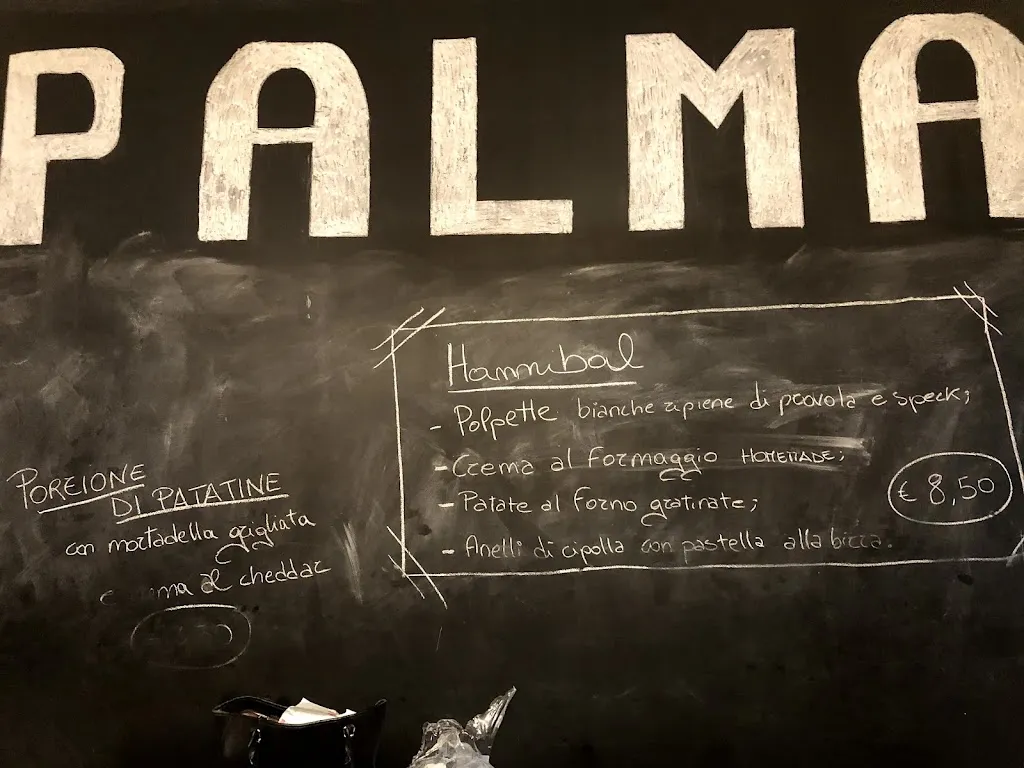 PALMA
Hannibal
- Polpette bianche ripiene di provola e speck;
- Crema al Formaggio HOMEMADE;
- Patate al Forno gratinate;
- Anelli di cipolla con pastella alla birra.
€ 8,50
PORZIONE
DI PATATINE
con mortadella grigliata
al cheddar